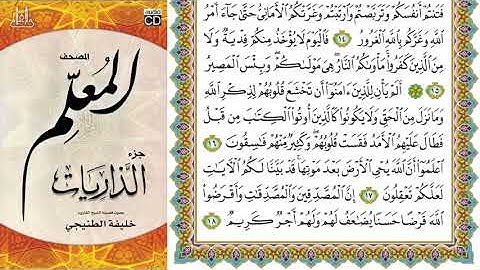 audio
CD
المصحف
المعلم
جزء
الذاريات
بصوت فضيلة الشيخ القارئ
خليفة الطنيجي
فَتَنتُمْ أَنفُسَكُمْ وَتَرَبَّصْتُمْ وَٱرْتَبْتُمْ وَغَرَّتْكُمُ ٱلْأَمَانِىُّ حَتَّىٰ جَآءَ أَمْرُ
ٱللَّهِ وَغَرَّكُم بِٱللَّهِ ٱلْغَرُورُ ١٤ فَٱلْيَوْمَ لَا يُؤْخَذُ مِنكُمْ فِدْيَةٌ وَلَا
مِنَ ٱلَّذِينَ كَفَرُوا۟ مَأْوَىٰكُمُ ٱلنَّارُ هِىَ مَوْلَىٰكُمْ وَبِئْسَ ٱلْمَصِيرُ
١٥ أَلَمْ يَأْنِ لِلَّذِينَ ءَامَنُوٓا۟ أَن تَخْشَعَ قُلُوبُهُمْ لِذِكْرِ ٱللَّهِ
وَمَا نَزَلَ مِنَ ٱلْحَقِّ وَلَا يَكُونُوا۟ كَٱلَّذِينَ أُوتُوا۟ ٱلْكِتَٰبَ مِن قَبْلُ
فَطَالَ عَلَيْهِمُ ٱلْأَمَدُ فَقَسَتْ قُلُوبُهُمْ وَكَثِيرٌ مِّنْهُمْ فَٰسِقُونَ ١٦
ٱعْلَمُوٓا۟ أَنَّ ٱللَّهَ يُحْىِ ٱلْأَرْضَ بَعْدَ مَوْتِهَا قَدْ بَيَّنَّا لَكُمُ ٱلْءَايَٰتِ
لَعَلَّكُمْ تَعْقِلُونَ ١٧ إِنَّ ٱلْمُصَّدِّقِينَ وَٱلْمُصَّدِّقَٰتِ وَأَقْرَضُوا۟
ٱللَّهَ قَرْضًا حَسَنًا يُضَٰعَفُ لَهُمْ وَلَهُمْ أَجْرٌ كَرِيمٌ ١٨